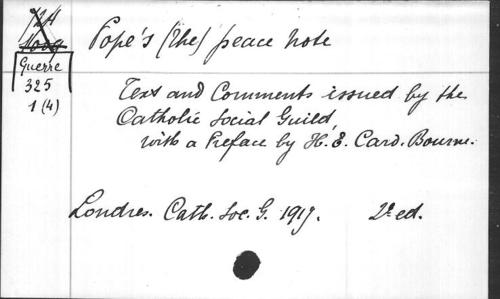 Pope's (The) peace note
Guerre
325
1 (4)
Text and Comments issued by the
Catholic Social Guild,
with a Preface by H. E. Card. Bourne.
Londres. Cath. Soc. G. 1917. 2e ed.